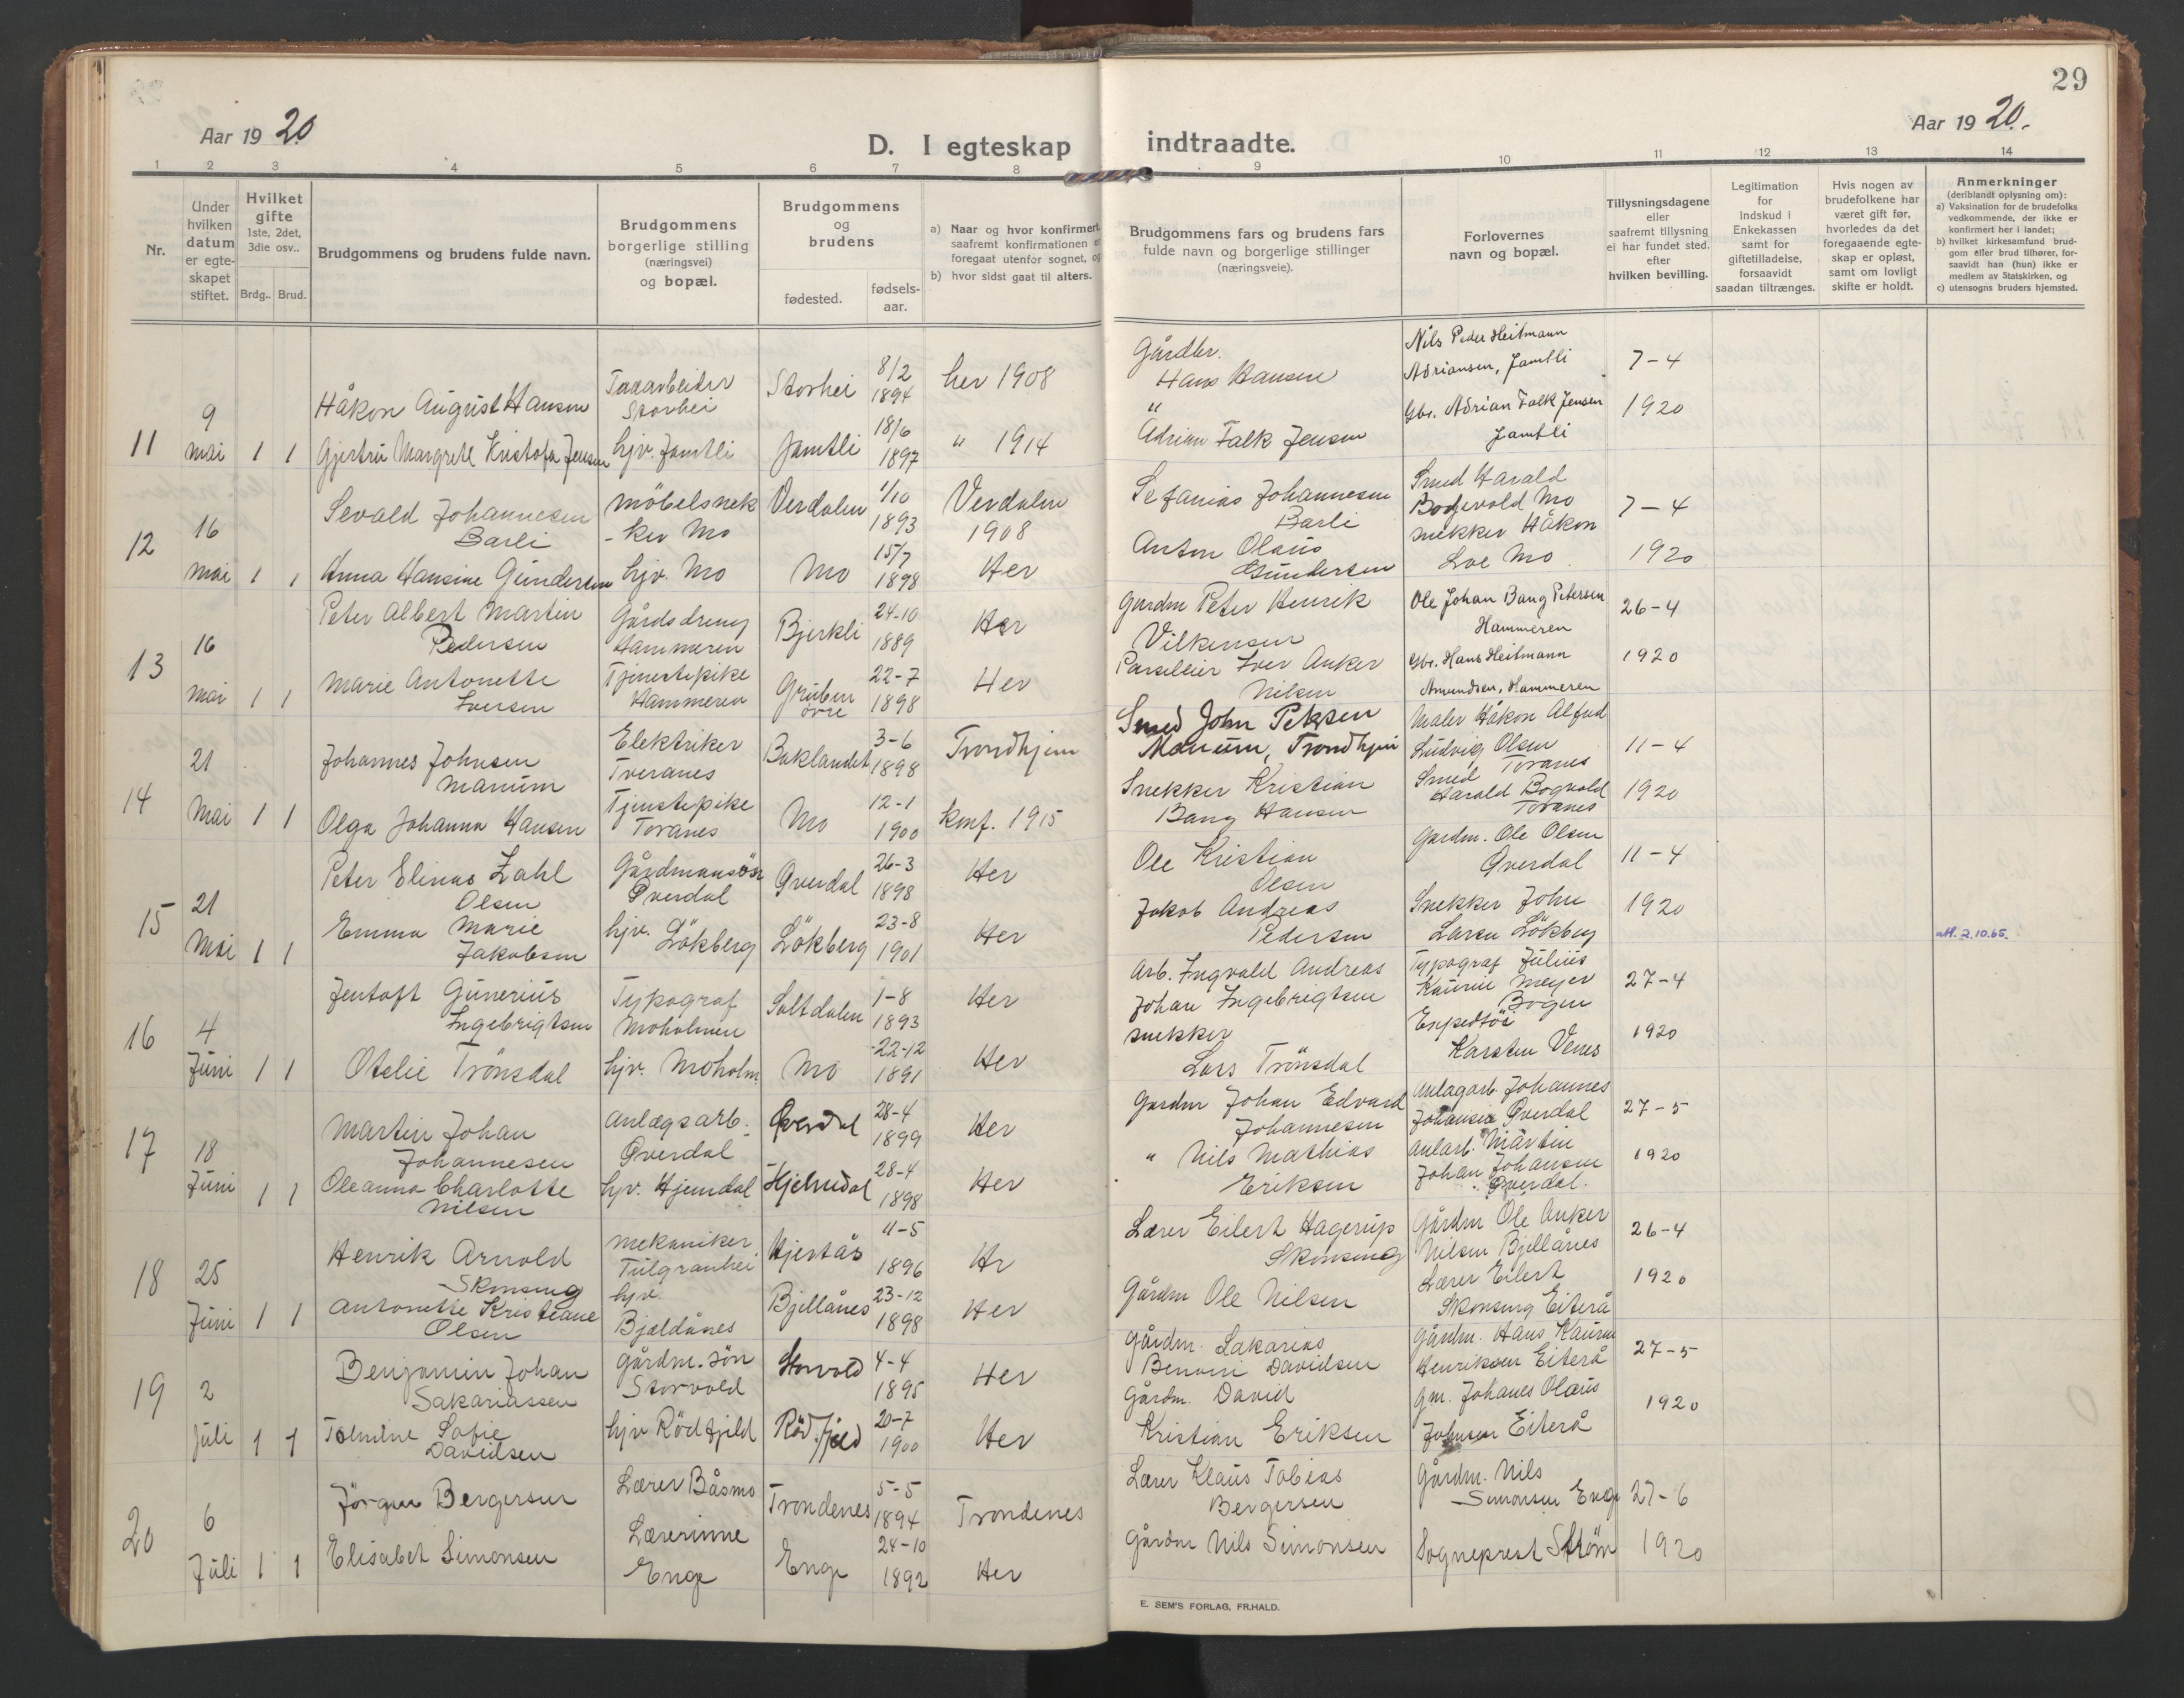 29
Aar 1920
D. I egteskap indtraadte.
Aar 1920.
1 2 3 4 5 6 7 8 9 10 11 12 13 14
Nr.
Under hvilken datum er egteskapet stiftet.
Hvilket gifte 1ste, 2det, 3die osv..
Brdg.. Brud.
Brudgommens og brudens fulde navn.
Brudgommens borgerlige stilling (næringsvei) og bopæl.
Brudgommens og brudens
fødested.
fødsels-aar.
a) Naar og hvor konfirmert,
saafremt konfirmationen er
foregaat utenfor sognet, og
b) hvor sidst gaat til alters.
Brudgommens fars og brudens fars
fulde navn og borgerlige stillinger
(næringsveie).
Forlovernes
navn og bopæl.
Tillysningsdagene
eller
saafremt tillysning
ei har fundet sted,
efter
hvilken bevilling.
Legitimation
for
indskud i
Enkekassen
samt for
giftetilladelse,
forsaavidt
saadan tiltrænges.
Hvis nogen av
brudefolkene har
været gift før,
hvorledes da det
foregaaende egte-
skap er opløst,
samt om lovligt
skifte er holdt.
Anmerkninger
(deriblandt oplysning om):
a) Vaksination for de brudefolks
vedkommende, der ikke er
konfirmert her i landet;
b) hvilket kirkesamfund brud-
gom eller brud tilhører, for-
saavidt han (hun) ikke er
medlem av Statskirken, og
c) utensogns bruders hjemsted.
11
9 mai 1 1
Håkon August Hansen
Storhei
Storhei
8/2 1894
her 1908
Gårdbr.
Hans Hansen
Nils Peder Heitmann
Adriansen, Jamtli
7-4
Gjertru Margrete Kristofa Jensen
hjv. Jamtli
Jamtli
18/6 1897
" 1914
"
Adrian Falk Jensen
Gbr. Adrian Falk Jensen
Jamtli
1920
12
16 mai 1 1
Sevald Johannesen
Barli
möbelsnek
-ker Mo
Verdalen
1/10 1893
Verdalen
1908
Sefanias Johannesen
Barli
Smed Harald
Mo
7-4
Anna Hansine Gundersen
hjv. Mo
Mo
15/7 1898
Her
Anton Olaus
Gundersen
snekker Håkon
Loe Mo
1920
13
16 mai 1 1
Peter Albert Martin
Pedersen
Gårdsdreng
Hammeren
Bjerkli
24-10 1889
Her
Gardm Peter Henrik
Vilkensen
Ole Johan Bang Petersen
Hammeren
26-4
Marie Antonette
Iversen
Tjenestepike
Hammeren
Gruben
övre
22-7 1898
Her
Parseleier Iver Anker
Nilsen
Gbr. Hans Heitmann
Amundsen, Hammeren
1920
14
21 Mai 1 1
Johannes Johnsen
Manum
Elektriker
Tveranes
Baklandet
3-6 1898
Trondhjem
Smed John Petersen
Manum, Trondhjem
Maler Håkon Alfred
Ludvig Olsen
Toranes
11-4
Olga Johanna Hansen
Tjenstepike
Toranes
Mo
12-1 1900
konf. 1915
Snekker Kristian
Bang Hansen
Smed
Harald Bogvald
Toranes
1920
15
21 Mai 1 1
Peter Elinas Zahl
Olsen
Gårdmansön
Överdal
Överdal
26-3 1898
Her
Ole Kristian
Olsen
Gardm. Ole Olsen
Överdal
11-4
Emma Marie
Jakobsen
hjv. Lökberg
Lökberg
23-8 1901
Her
Jakob Andreas
Pedersen
Snekker John
Larsen Lökberg
1920
att. 2.10.65.
16
4 Juni 1 1
Jentoft Gunerius
Ingebrigtsen
Typograf
Moholmen
Saltdalen
1-8 1893
Her
Arb. Ingvald Andreas
Johan Ingebrigtsen
Typograf Julius
Kaurin Meyer
Bogen
27-4
Otelie Trönsdal
hjv. Moholm
Mo
22-12 1891
Her
snekker
Lars Trönsdal
Karsten Venes
1920
17
18 Juni 1 1
Martin Johan
Johannesen
anlægsarb.
Överdal
Överdal
28-4 1899
Her
Gardm Johan Edvard
Johannesen
Anlagarb. Johannes
Johansen Överdal
27-5
Oleanna Charlotte
Nilsen
hjv. Hjemdal
Hjelmdal
28-4 1898
Her
" Nils Mathias
Eriksen
anlarb. Martin
Johan Johansen
Överdal.
1920
18
25 Juni 1 1
Henrik Arnold
Skonseng
mekaniker
Tulgranhei
Hjertås
11-5 1896
Hr
Lærer Eilert Hagerup
Skonseng
Gårdm Ole Anker
Nilsen Bjellånes
26-4
Antonette Kristiane
Olsen
hjv.
Bjældånes
Bjellånes
23-12 1898
Her
Gårdm Ole Nilsen
Lærer Eilert
Skonseng Eiterå
1920
19
2 Juli 1 1
Benjamin Johan
Sakariassen
gårdm. sön
Storvold
Storvold
4-4 1895
Her
Gårdm. Sakarias
Benoni Davidsen
Gårdm. Hans Kaurin
Henriksen Eiterå
27-5
Sofie
Davidsen
hjv Rödfjeld
Rödfjeld
20-7 1900
Her
Gårdm. David
Kristian Eriksen
Gm. Johanes Olaus
Johnsen Eiterå
1920
20
6 Juli 1 1
Jörgen Bergersen
Lærer Båsmo
Trondenes
5-5 1894
Trondenes
Lærer Klaus Tobias
Bergersen
Gårdm. Nils
Simonsen Enge
27-6
Elisabet Simonsen
Lærerinne
Enge
Enge
24-10 1892
Her
Gårdm Nils Simonsen
Sogneprest Ström
1920
E. SEM'S FORLAG, FR.HALD.